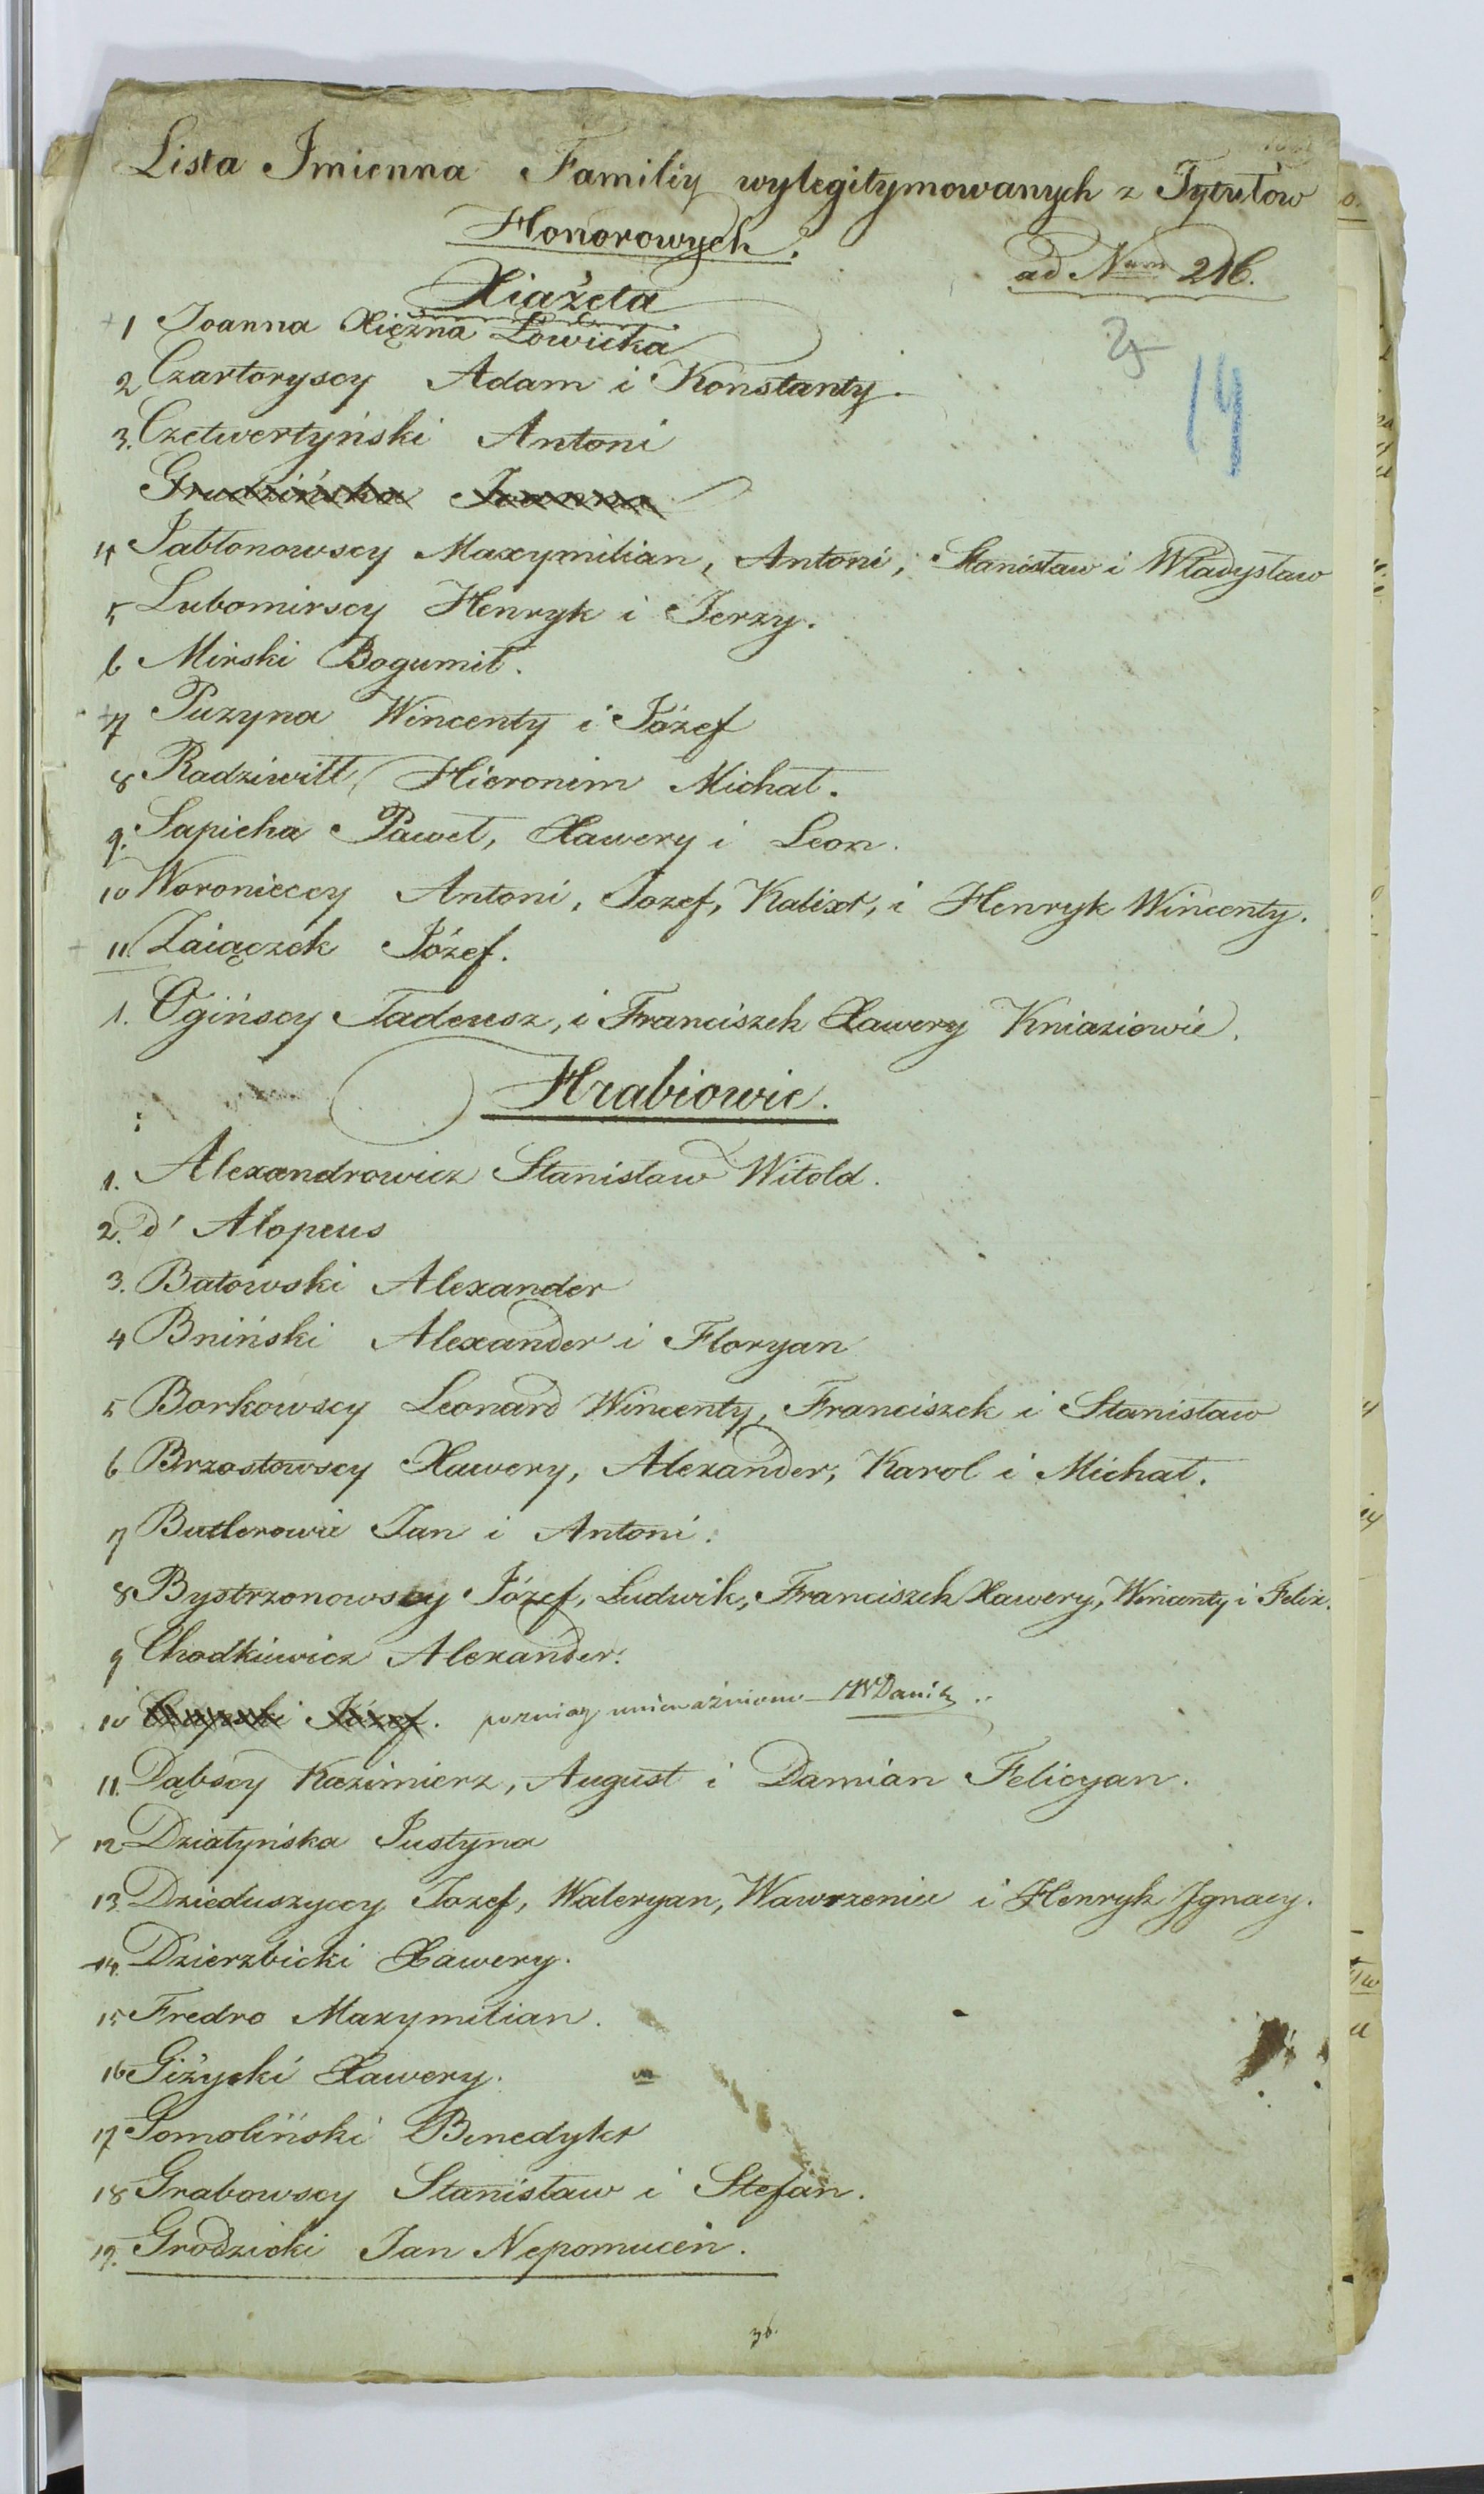 Lista Imienna Familiy wylegitymowanych z Tytułow
Honorowych.
ad Num 216.
Xiażęta
19
1 Joanna Xiężna Łowicka
2 Czartoryscy Adam i Konstanty.
3. Czetwertyński Antoni
Grudzińska Joanna
4 Jabłonowscy Maxymilian, Antoni, Stanisław i Władysław
5 Lubomirscy Henryk i Jerzy.
6 Mirski Bogumił.
7 Puzyna Wincenty i Józef
8 Radziwiłł Hieronim Michał.
9. Sapieha Paweł, Xawery i Leon.
10 Woronieccy Antoni, Jozef, Kalixt, i Henryk Wincenty.
11. Zaiączek Józef.
1. Ogińscy Tadeusz, i Franciszek Xawery Kniaziowie.
Hrabiowie.
1. Alexandrowicz Stanisław Witold.
2. d' Alopeus
3. Batowski Alexander
4 Bniński Alexander i Floryan
5 Borkowscy Leonard Wincenty, Franciszek i Stanisław
6 Brzostowscy Xawery, Alexander, Karol i Michał.
7 Butlerowie Jan i Antoni.
8 Bystrzonowscy Józef, Ludwik, Franciszek Xawery, Wincenty i Felix.
9 Chodkiewicz Alexander.
10 Józef. unieważniono
11. Dąbscy Kazimierz, August i Damian Felicyan.
12 Działyńska Justyna
13. Dzieduszyccy Jozef, Waleryan, Wawrzeniec i Henryk Ignacy.
14. Dzierzbicki Xawery.
15 Fredro Maxymilian.
16 Giżycki Xawery.
17 Gomoliński Benedykt
18 Grabowscy Stanisław i Stefan.
19. Grodzicki Jan Nepomucen.
36.